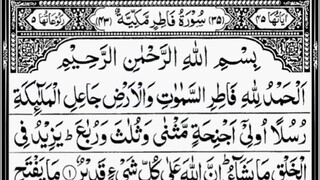 اٰیَاتُهَا ۴۵ (۳۵) سُوْرَةُ فَاطِرٍ مَّكِّیَّةٌ (۴۳) رُكُوْعَاتُهَا ۵
بِسْمِ اللّٰهِ الرَّحْمٰنِ الرَّحِیْمِ
اَلْحَمْدُ لِلّٰهِ فَاطِرِ السَّمٰوٰتِ وَالْاَرْضِ جَاعِلِ الْمَلٰٓىِٕكَةِ
رُسُلًا اُولِیْۤ اَجْنِحَةٍ مَّثْنٰی وَثُلٰثَ وَرُبٰعَ ؕ یَزِیْدُ فِی
الْخَلْقِ مَا یَشَآءُ ؕ اِنَّ اللّٰهَ عَلٰی كُلِّ شَیْءٍ قَدِیْرٌ ۱ مَا یَفْتَحِ